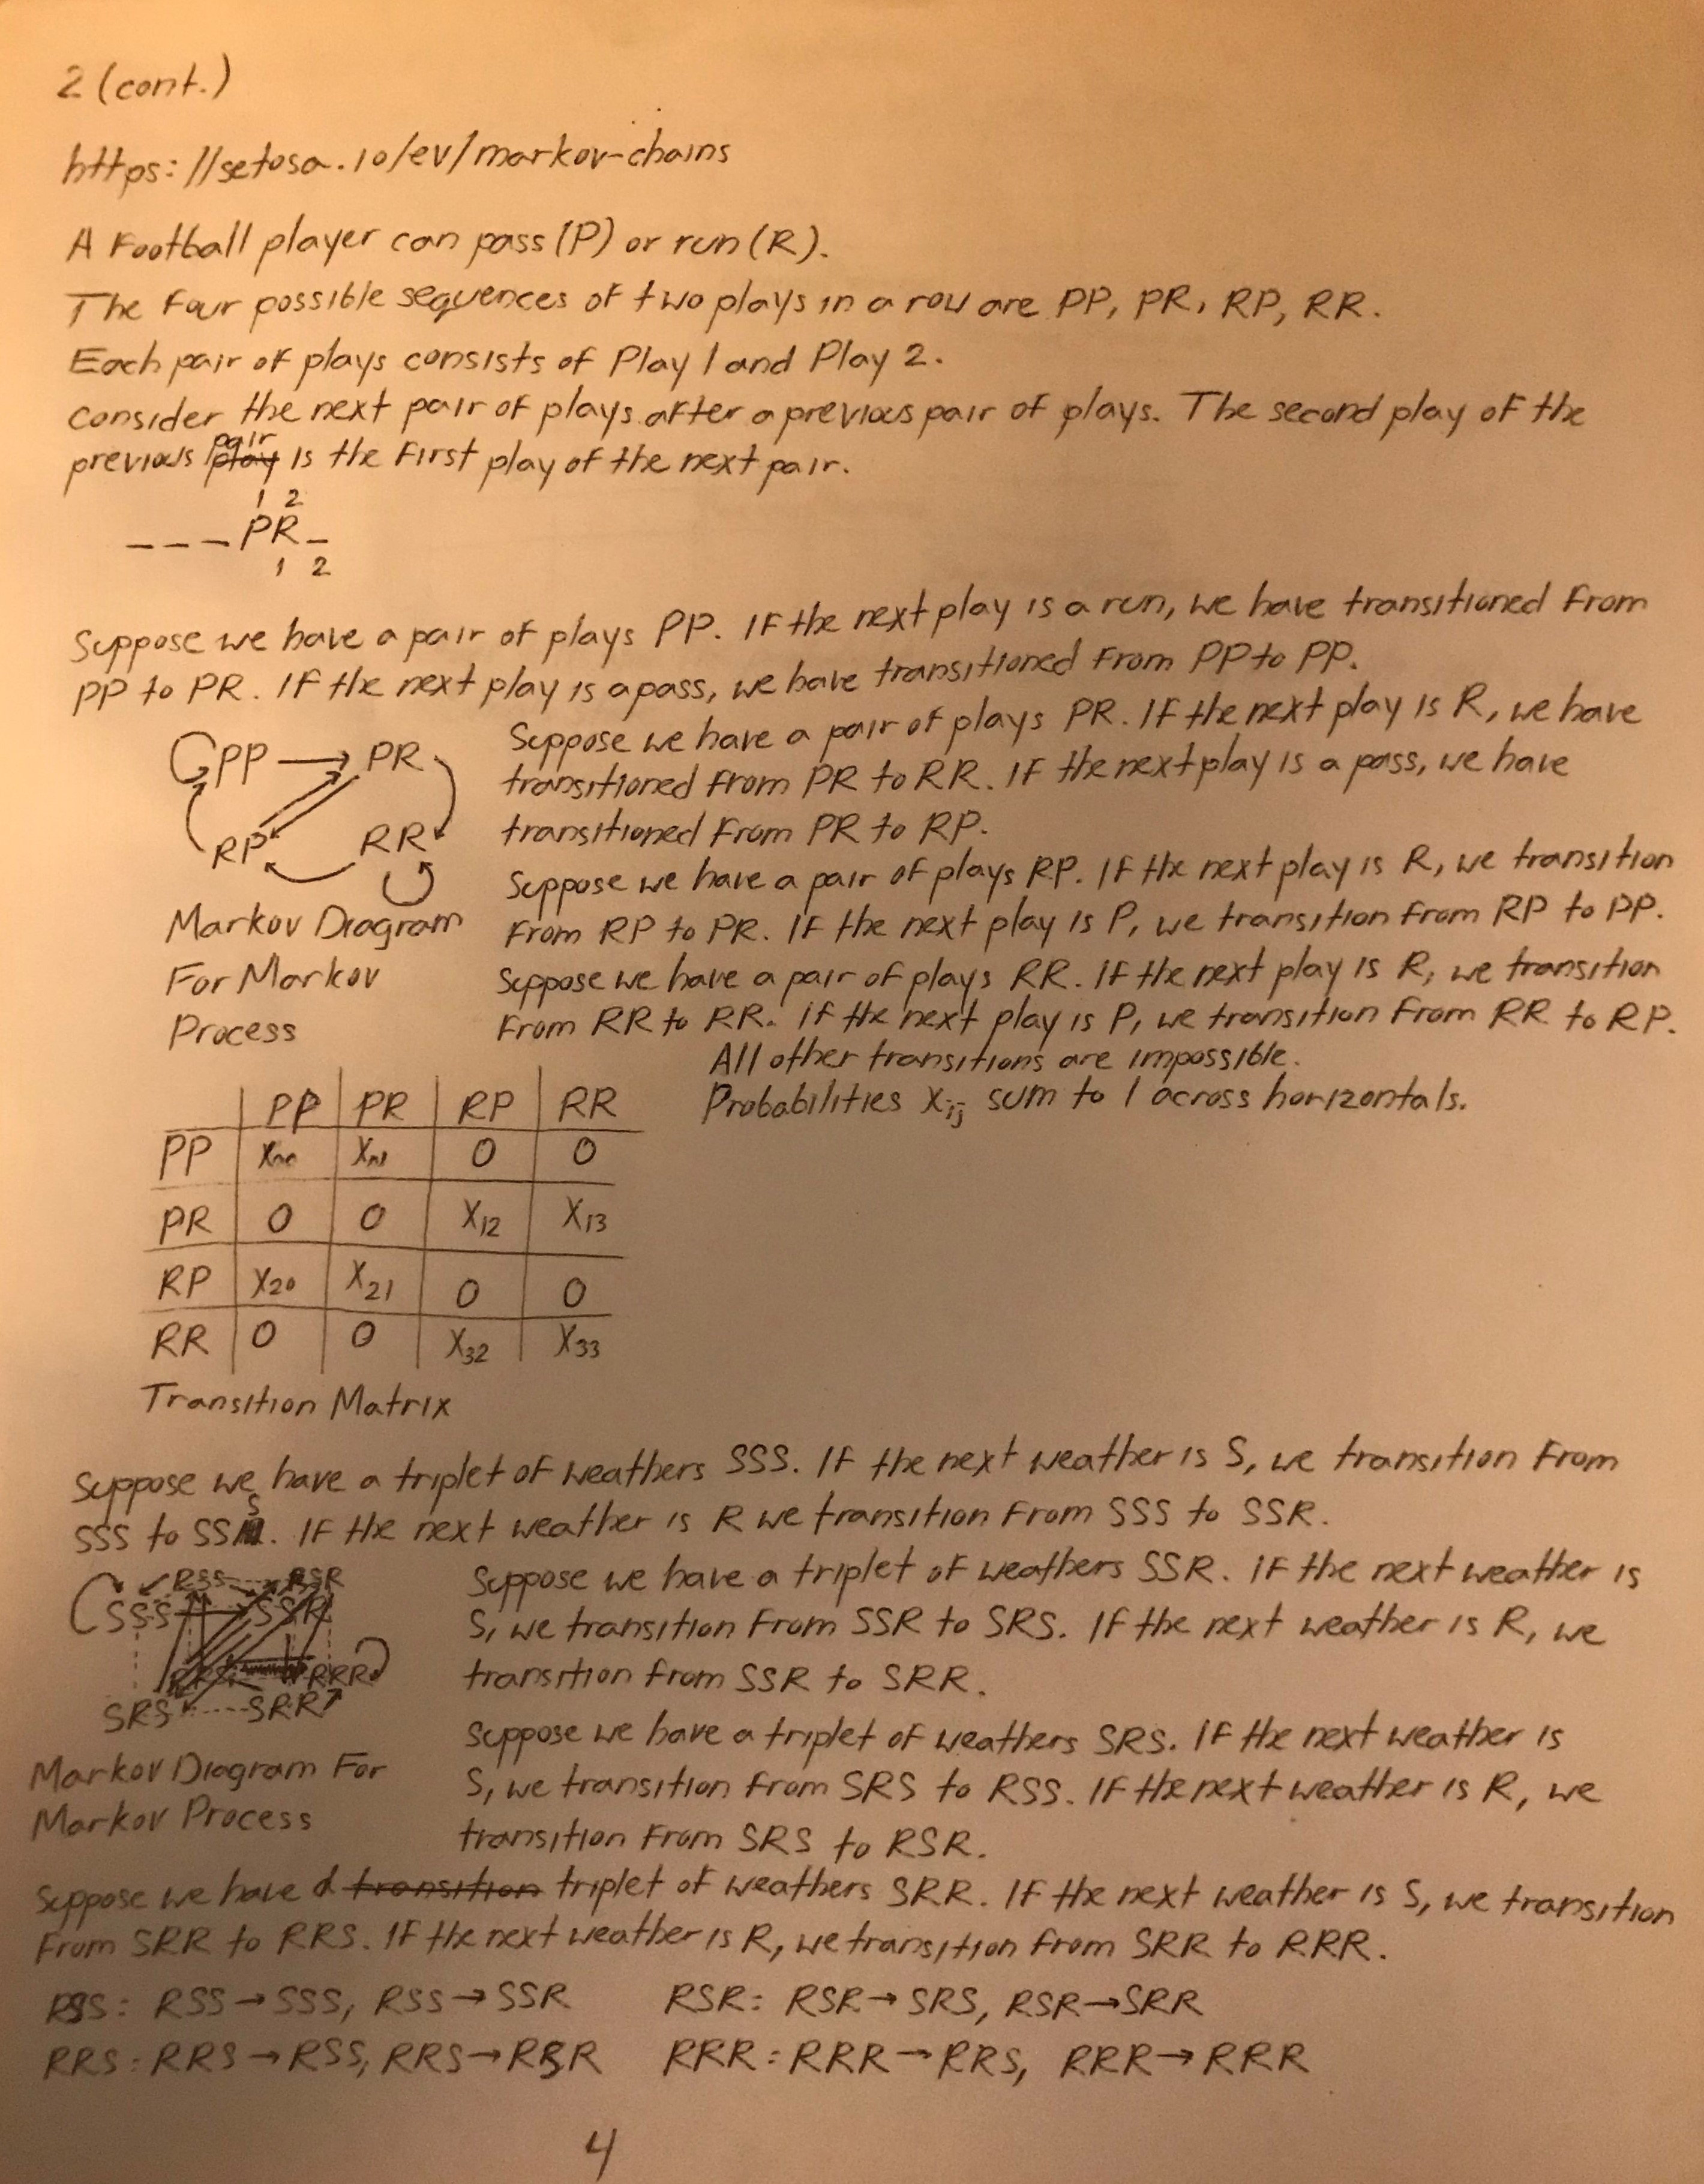 2 (cont.)
https://setosa.io/ev/markov-chains
A Football player can pass (P) or run (R).
The four possible sequences of two plays in a row are PP, PR, RP, RR.
Each pair of plays consists of Play 1 and Play 2.
Consider the next pair of plays after a previous pair of plays. The second play of the
previous pair is the first play of the next pair.
1 2
_ _ _ PR _
1 2
Suppose we have a pair of plays PP. If the next play is a run, we have transitioned from
PP to PR. If the next play is a pass, we have transitioned from PP to PP.
Suppose we have a pair of plays PR. If the next play is R, we have
transitioned from PR to RR. If the next play is a pass, we have
transitioned from PR to RP.
PP → PR
RP RR
Markov Diagram
For Markov
Process
Suppose we have a pair of plays RP. If the next play is R, we transition
from RP to PR. If the next play is P, we transition from RP to PP.
Suppose we have a pair of plays RR. If the next play is R, we transition
from RR to RR. If the next play is P, we transition from RR to RP.
All other transitions are impossible.
Probabilities Xij sum to 1 across horizontals.
PP PR RP RR
PP X00 X01 0 0
PR 0 0 X12 X13
RP X20 X21 0 0
RR 0 0 X32 X33
Transition Matrix
Suppose we have a triplet of weathers SSS. If the next weather is S, we transition from
SSS to SSS. If the next weather is R we transition from SSS to SSR.
RSS RSR
SSS SSR
RRS RRR
SRS SRR
Markov Diagram For
Markov Process
Suppose we have a triplet of weathers SSR. If the next weather is
S, we transition from SSR to SRS. If the next weather is R, we
transition from SSR to SRR.
Suppose we have a triplet of weathers SRS. If the next weather is
S, we transition from SRS to RSS. If the next weather is R, we
transition from SRS to RSR.
Suppose we have a transition triplet of weathers SRR. If the next weather is S, we transition
from SRR to RRS. If the next weather is R, we transition from SRR to RRR.
RSS: RSS → SSS, RSS → SSR RSR: RSR → SRS, RSR → SRR
RRS: RRS → RSS, RRS → RSR RRR: RRR → RRS, RRR → RRR
4